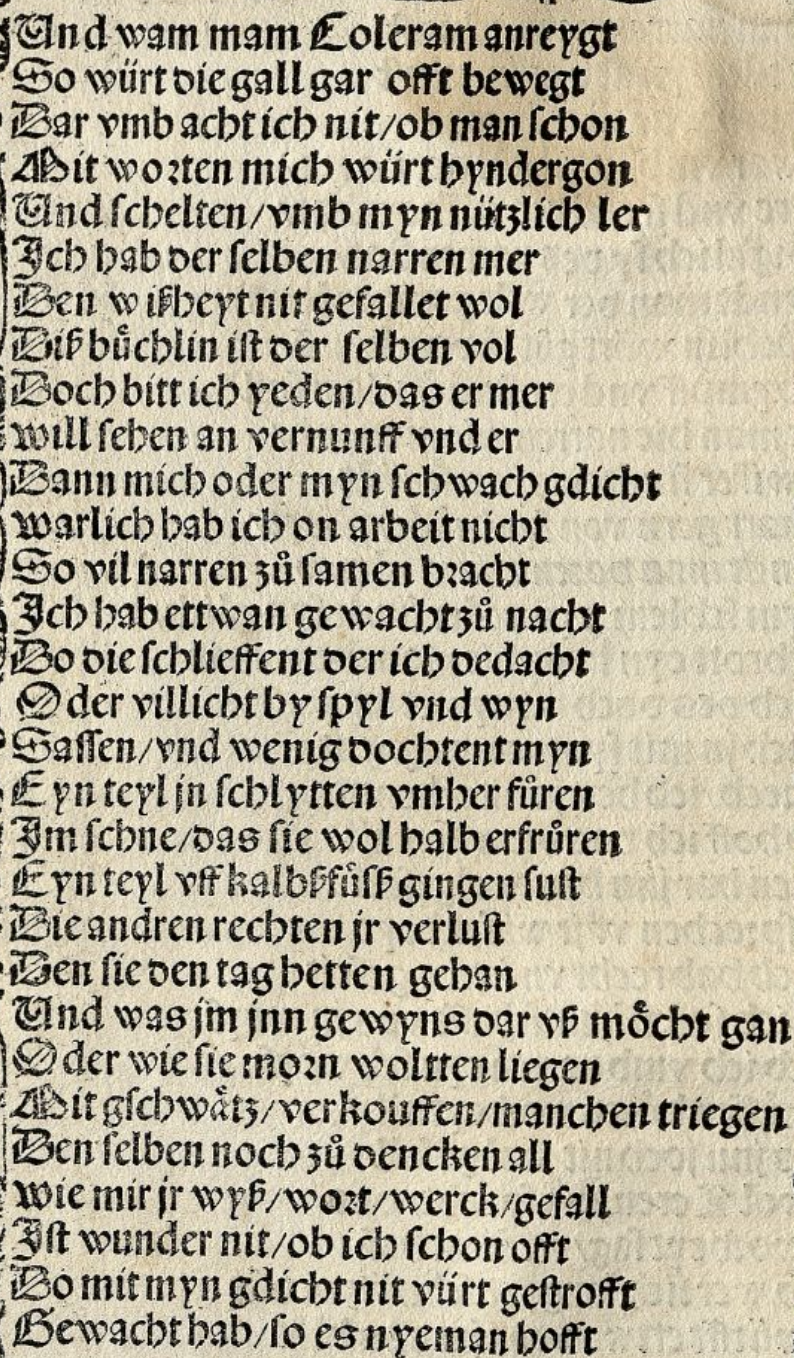 Und wam mam Coleram anreygt
So würt die gall gar offt bewegt
Dar vmb acht ich nit/ob man schon
Mit worten mich würt hyndergon
Und schelten/vmb myn nützlich ler
Ich hab der selben narren mer
Den wißheyt nit gefallet wol
Diß buͤchlin ist der selben vol
Doch bitt ich yeden/das er mer
Will sehen an vernunff vnd er
Dann mich oder myn schwach gdicht
Warlich hab ich on arbeit nicht
So vil narren zuͦ samen bracht
Ich hab ettwan gewacht zuͦ nacht
Do die schlieffent der ich dedacht
Oder villicht by spyl vnd wyn
Sassen/vnd wenig dochtent myn
Eyn teyl jn schlytten vmbher fuͦren
Im schne/das sie wol halb erfruͦren
Eyn teyl vff kalbßfuͤsß gingen sust
Die andren rechten jr verlust
Den sie den tag hetten gehan
Und was jm jnn gewyns dar vß moͤcht gan
Oder wie sie morn woltten liegen
Mit gschwaͤtz/verkouffen/manchen triegen
Den selben noch zuͦ dencken all
Wie mir jr wyß/wort/werck/gefall
Ist wunder nit/ob ich schon offt
Do mit myn gdicht nit vürt gestrofft
Gewacht hab/so es nyeman hofft